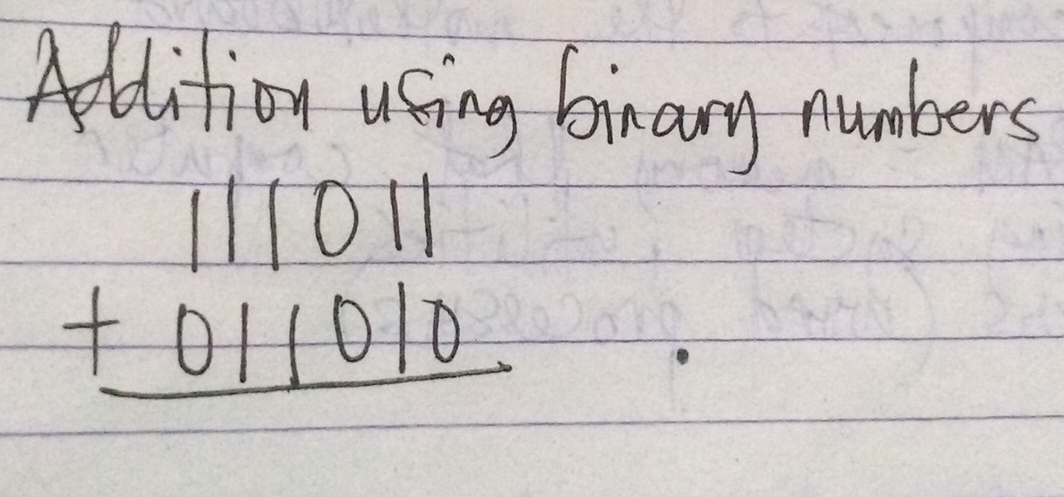 Addition using binary numbers
111011
+ 011010